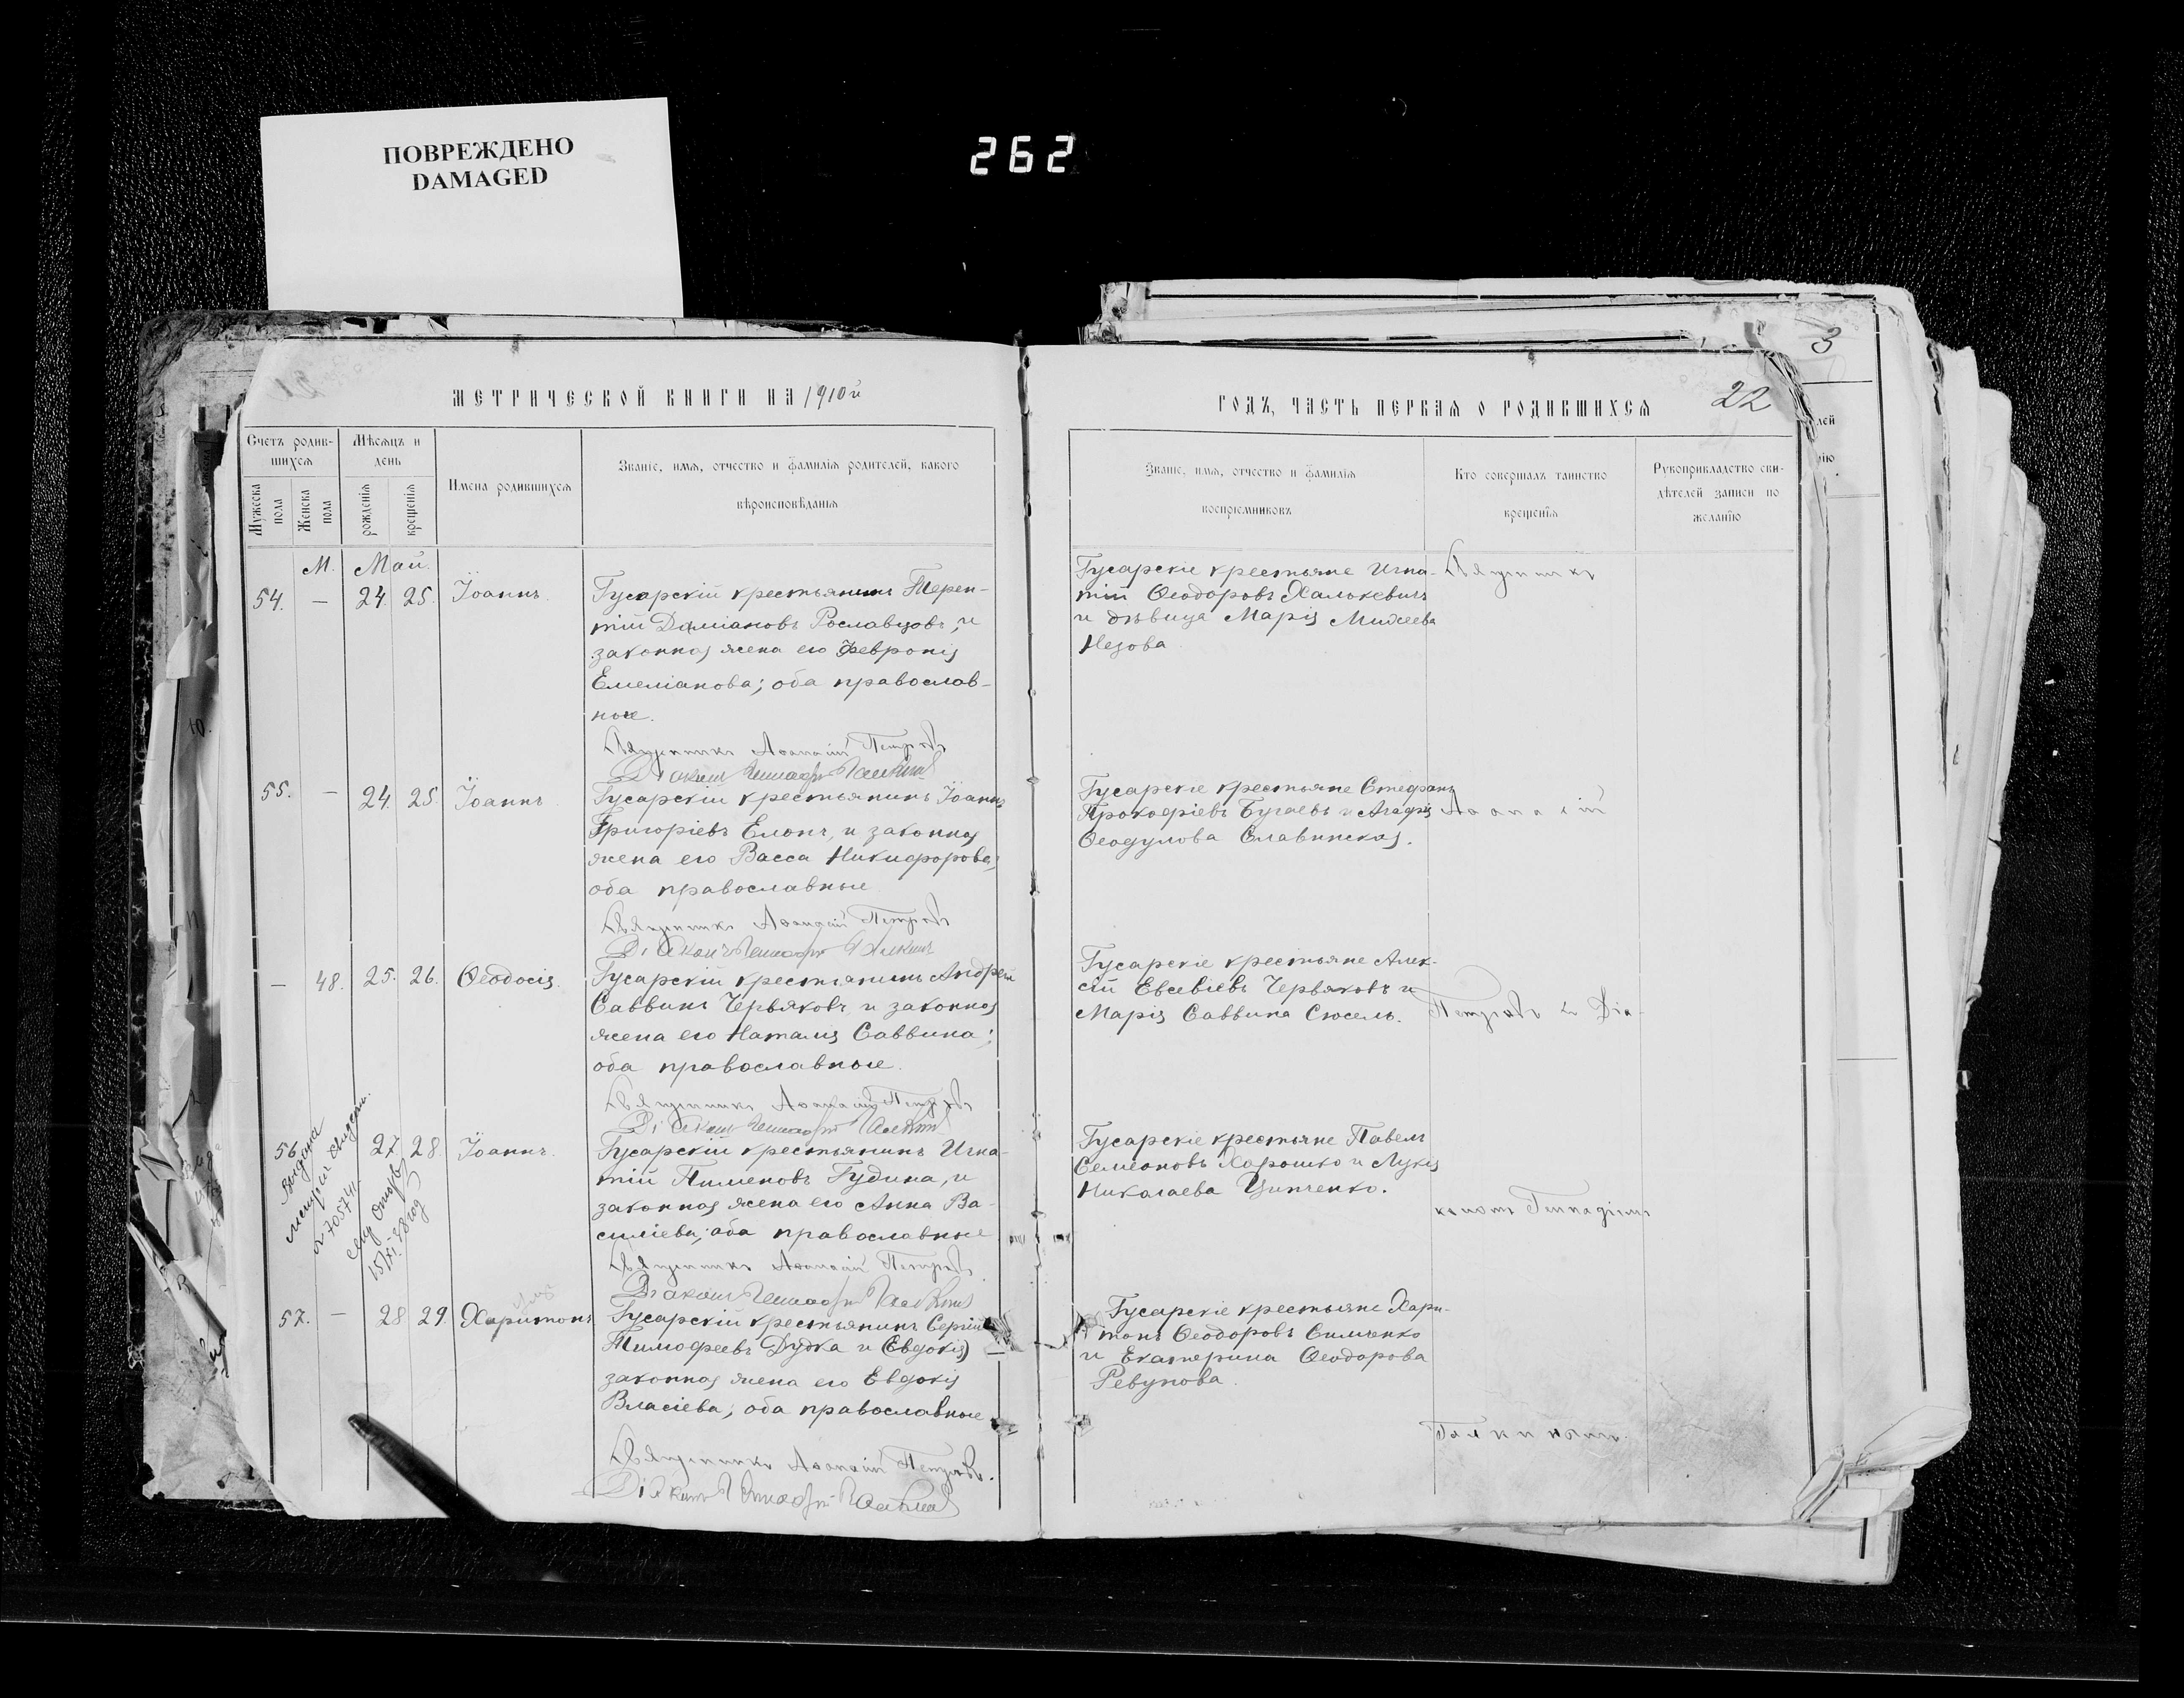 ПОВРЕЖДЕНО
DAMAGED
262
3
МЕТРИЧЕСКОЙ КНИГИ НА 1910й
Счетъ родив-
шихся
Мѣсяцъ и
день
Имена родившихся
Званіе, имя, отчество и фамилія родителей, какого
вѣроисповѣданія
Мужеска пола
Женска пола
рожденія
крещенія
М. Май.
54. — 24. 25. Іоаннъ.
Гусарскій крестьянинъ Терен-
тій Даміановъ Рославцовъ, и
законная жена его Февронія
Емеліанова; оба православ-
ные.
Священникъ Аѳанасій Петровъ
Діаконъ Геннадій Галкинъ
55. — 24. 25. Іоаннъ
Гусарскій крестьянинъ Іоаннъ
Григоріевъ Елонъ, и законная
жена его Васса Никифорова;
оба православные
Священникъ Аѳанасій Петровъ
Діаконъ Геннадій Галкинъ
— 48. 25. 26. Ѳеодосія.
Гусарскій крестьянинъ Андрей
Саввинъ Червяковъ, и законная
жена его Наталія Саввина;
оба православные.
Священникъ Аѳанасій Петровъ
Діаконъ Геннадій Галкинъ
56 27. 28. Іоаннъ.
Выдана
№ 70574
15/XI-28 год
Гусарскій крестьянинъ Игна-
тій Пименовъ Гудина, и
законная жена его Анна Ва-
силіева; оба православные
Священникъ Аѳанасій Петровъ
Діаконъ Геннадій Галкинъ
57. — 28 29. Харитонъ
Гусарскій крестьянинъ Сергій
Тимофеевъ Дудка и (Евдокія)
законная жена его Евдокія
Власіева; оба православные
Священникъ Аѳанасій Петровъ.
Діаконъ Геннадій Галкинъ
ГОДЪ, ЧАСТЬ ПЕРВАЯ О РОДИВШИХСЯ
22
Званіе, имя, отчество и фамилія
воспріемниковъ
Кто совершалъ таинство
крещенія
Рукоприкладство сви-
дѣтелей записи по
желанію
Гусарскіе крестьяне Игна-
тій Ѳеодоровъ Халюкевичъ
и дѣвица Марія
Незова
Священникъ
Гусарскіе крестьяне Стефанъ
Прокофіевъ Бугаевъ и Агафія
Ѳеодулова Славинская.
Аѳанасій
Гусарскіе крестьяне Алек-
сій Евсевіевъ Червяковъ и
Марія Саввина Сюсель.
Петровъ съ Діа-
Гусарскіе крестьяне Павелъ
Семеоновъ Хорошко и Лукія
Николаева Ципченко.
кономъ Геннадіемъ
Гусарскіе крестьяне Хари-
тонъ Ѳеодоровъ Симченко
и Екатерина Ѳеодорова
Ревунова.
Галкинымъ.